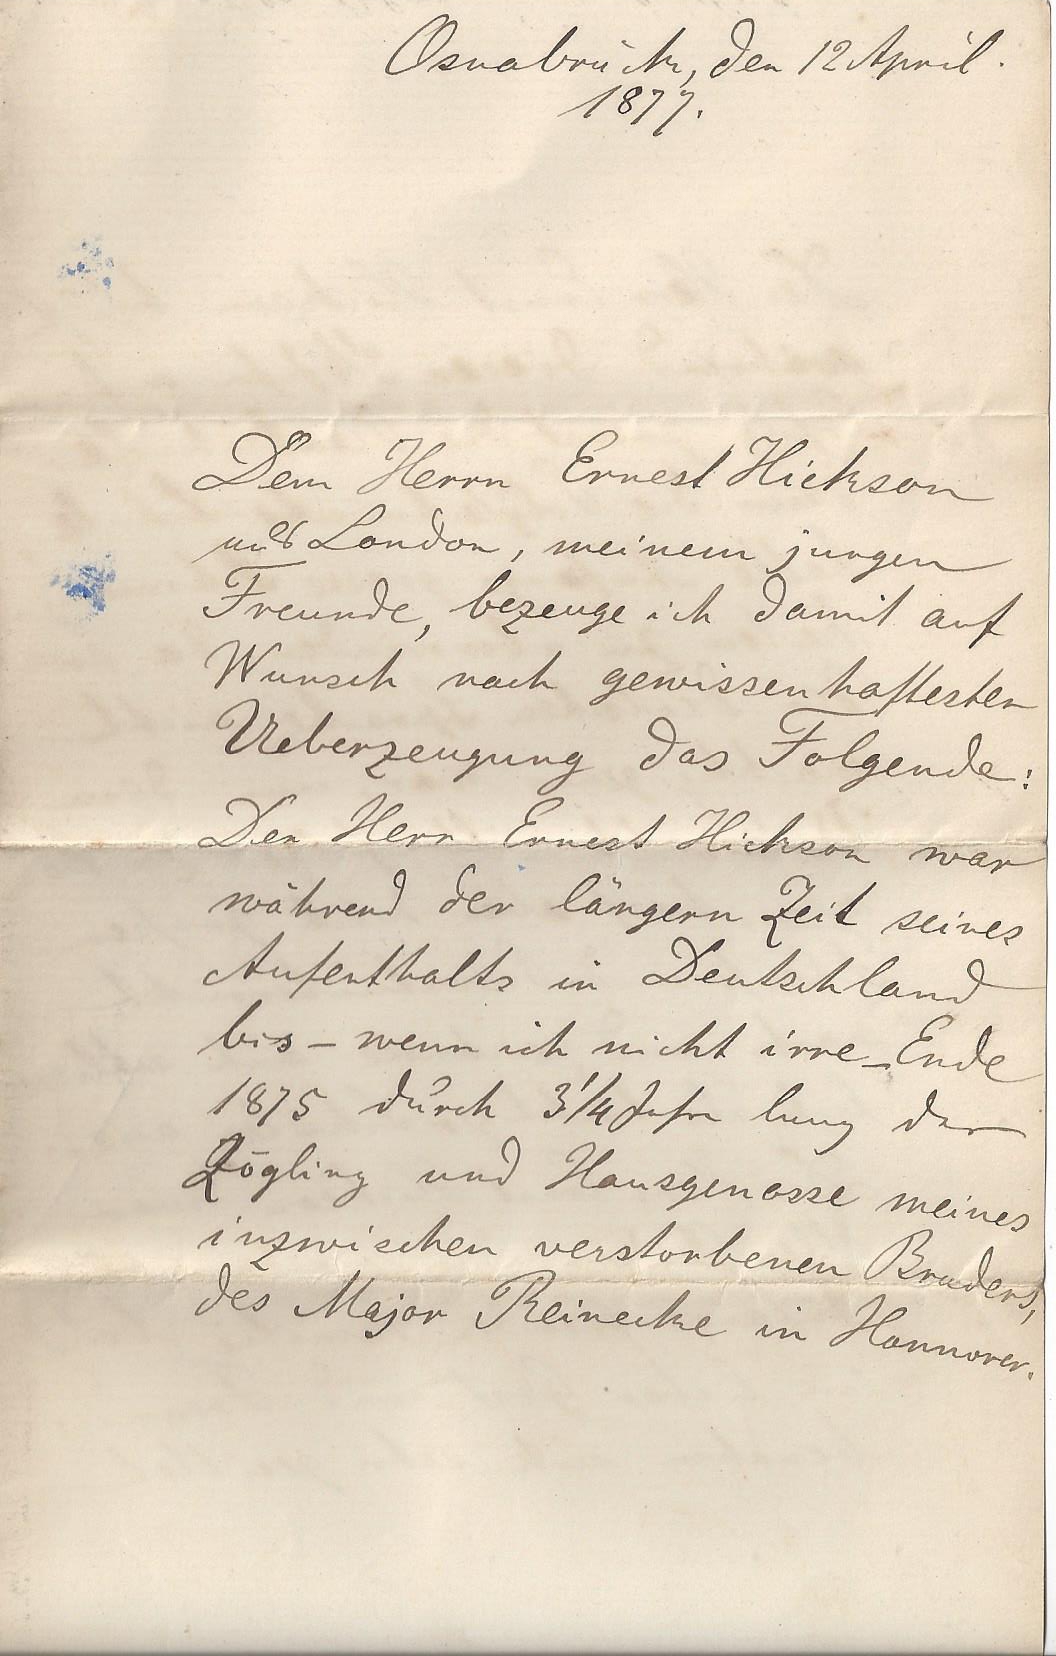 Osnabrück, den 12 April.
1877.
Dem Herrn Ernest Hickson
aus London, meinem jungen
Freunde, bezeuge ich damit auf
Wunsch nach gewissenhaftester
Ueberzeugung das Folgende:
Der Herr Ernest Hickson war
während der längern Zeit seines
Aufenthalts in Deutschland
bis – wenn ich nicht irre – Ende
1875 durch 3 1/4 Jahr lang der
Zögling und Hausgenosse meines
inzwischen verstorbenen Bruders,
des Major Reinecke in Hannover.